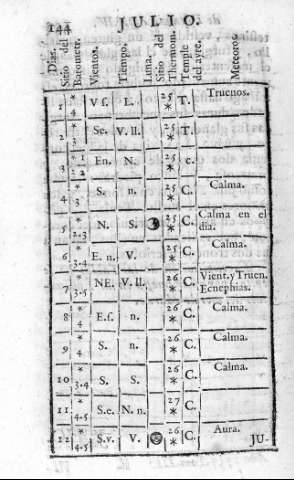 144 JULIO.
Dias.
Sitio del Barometr.
Vientos.
Tiempo.
Luna.
Sitio del Thermom.
Temple del ayre.
Meteoros
1 * 4 Vſ. L. 25 * T. Truenos.
2 * 3 Se. V. ll. 25 * T.
3 * En. N. 25 * c.
4 * 3 S. n. 25 * C. Calma.
5 * 2-3 N. S. 25 * C. Calma en el
dia.
6 * 3-4 E. n. V. 25 * C. Calma.
7 * 3-5 NE. V. ll. 26 * C. Vient. y Truen.
Ecnephias.
8 * 4 E.ſ. n. 26 * C. Calma.
9 * 4 S. n. 26 * C. Calma.
10 * 3-4 S. S. 26 * C. Calma.
11 * 4-5 S.e. N. n. 27 * C.
12 * 4-5 S.v. V. 26 * C. Aura.
JU-